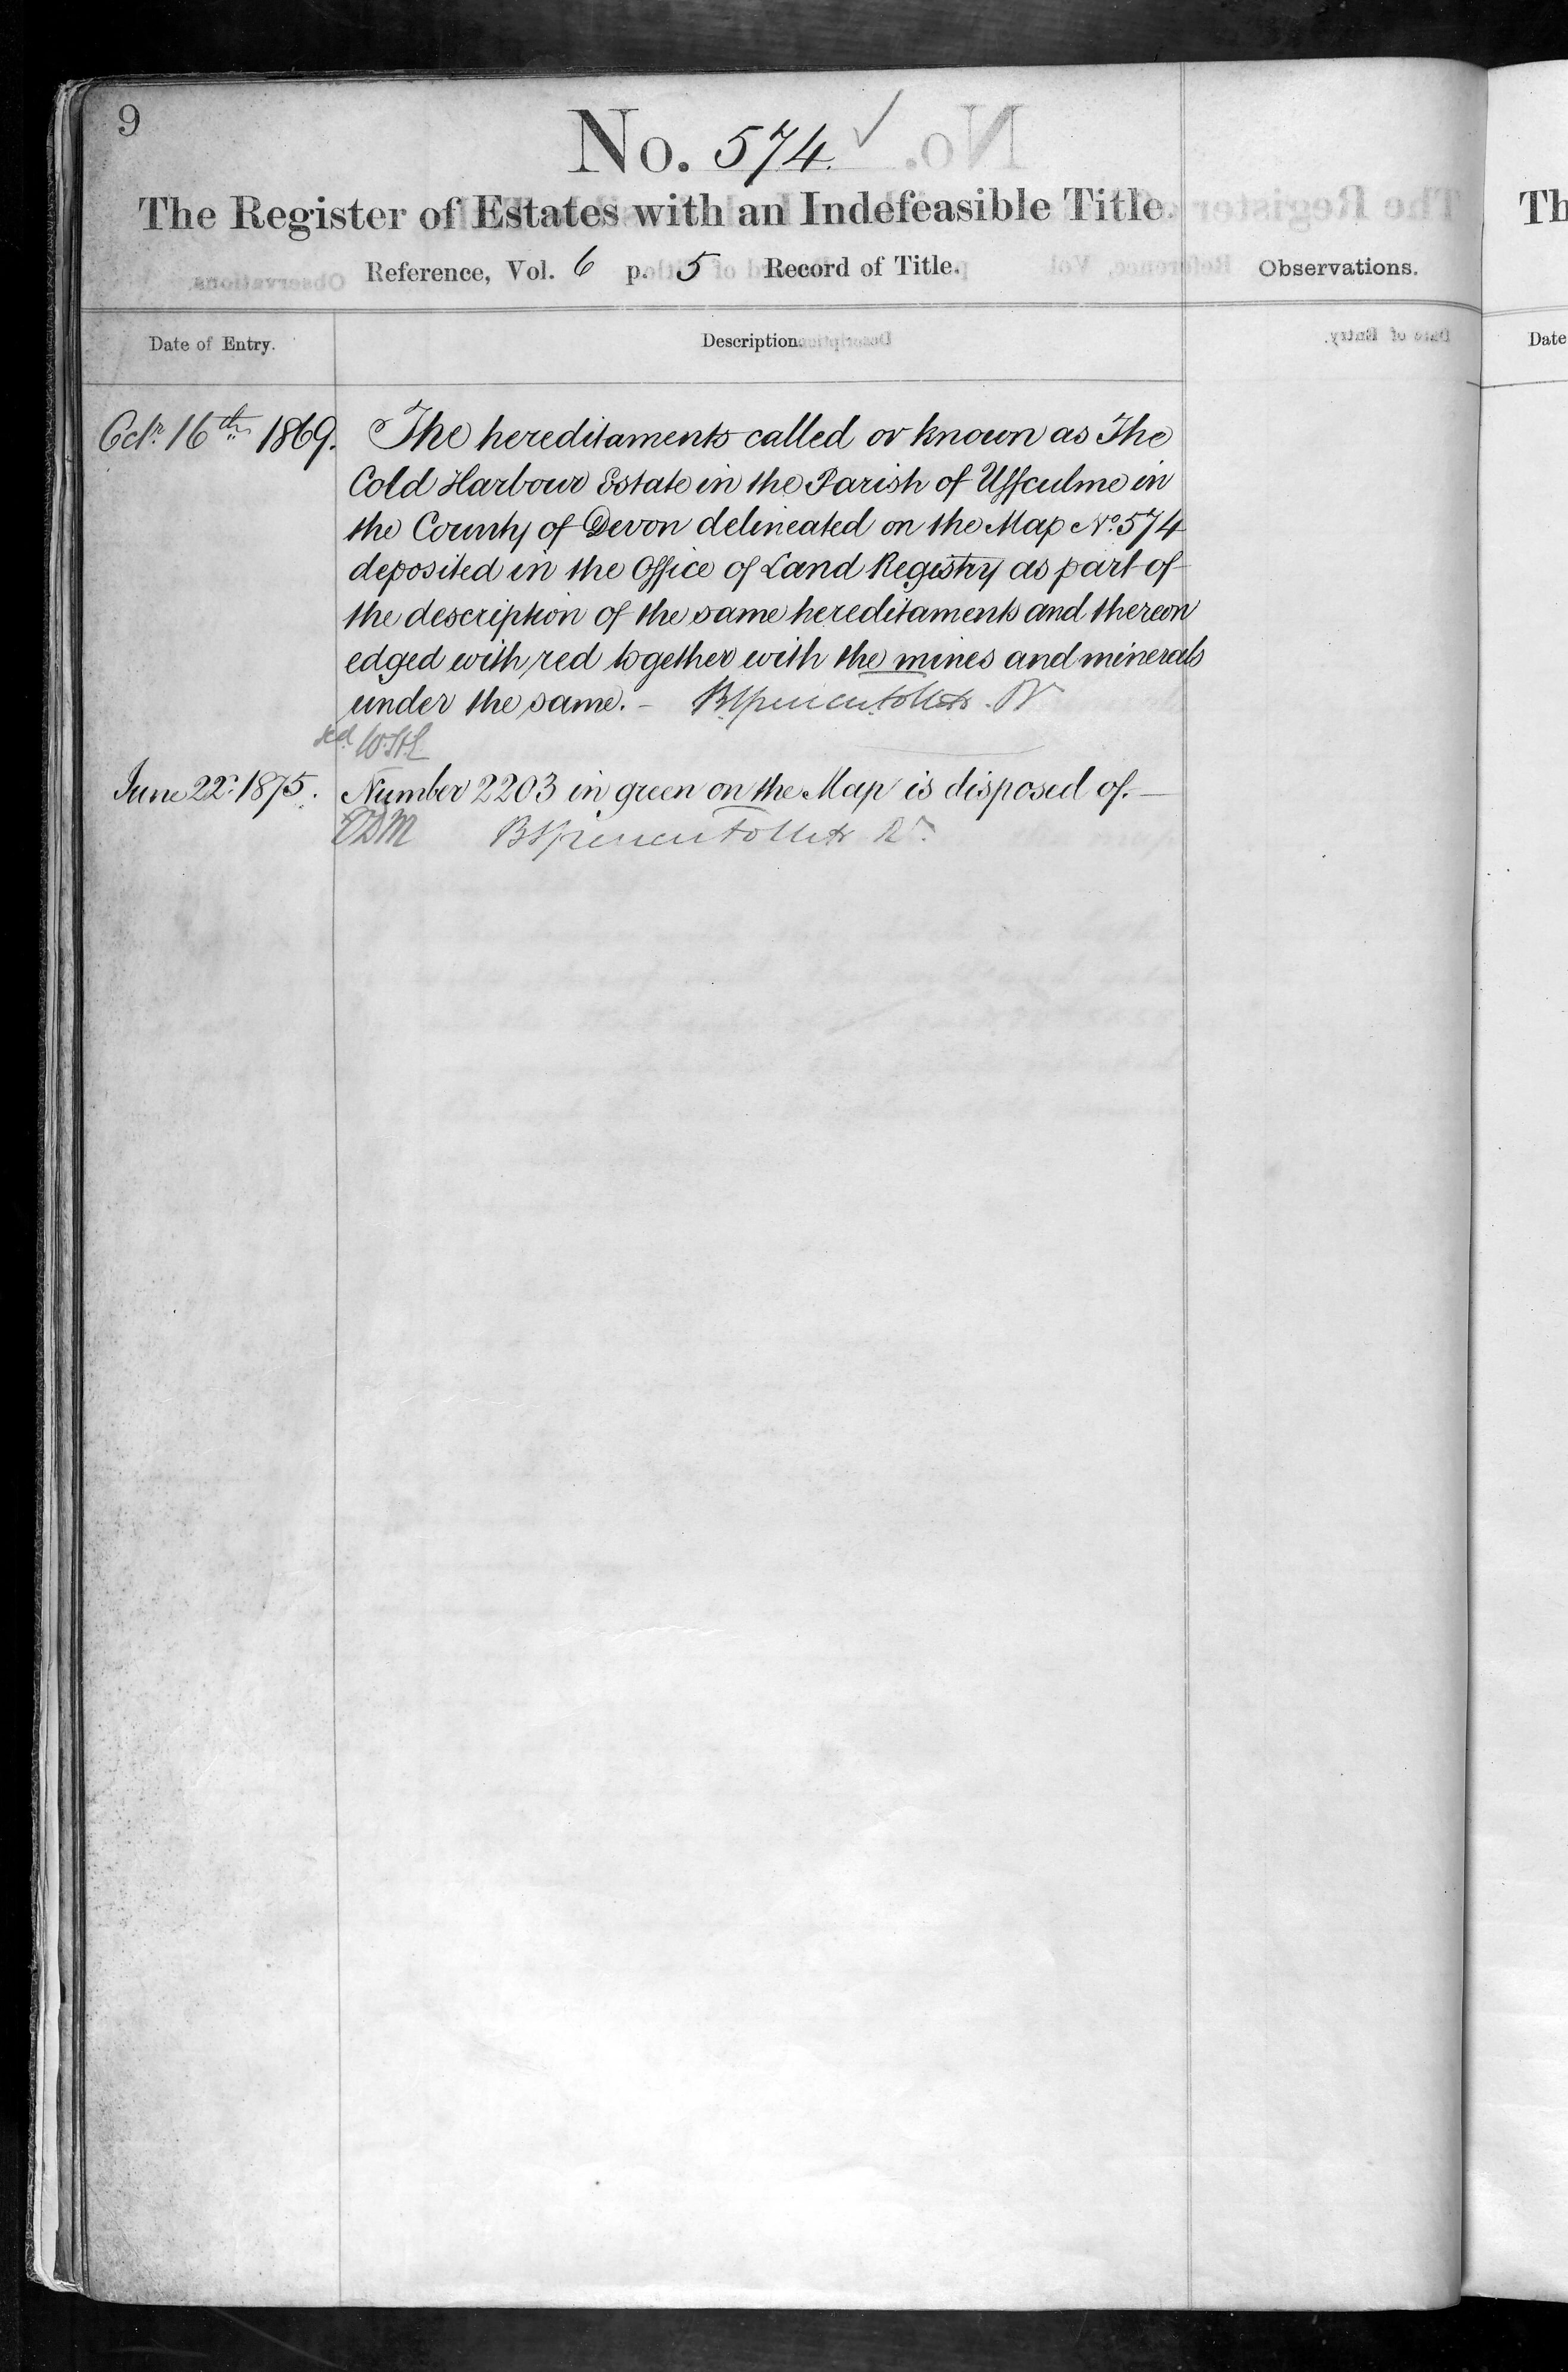 9
No. 574.
The Register of Estates with an Indefeasible Title.
Reference, Vol. 6 p. 5 Record of Title.
Observations.
Date of Entry.
Description.
Octr. 16th 1869.
The hereditaments called or known as The
Cold Harbour Estate in the Parish of Uffculme in
the County of Devon delineated on the Map No. 574
deposited in the Office of Land Registry as part of
the description of the same hereditaments and thereon
edged with red together with the mines and minerals
under the same. — Brent Spencer Follett. Rr
W.H.
June 22d 1875.
Number 2203 in green on the Map is disposed of. —
Brent Spencer Follett Rr.
Th
Date